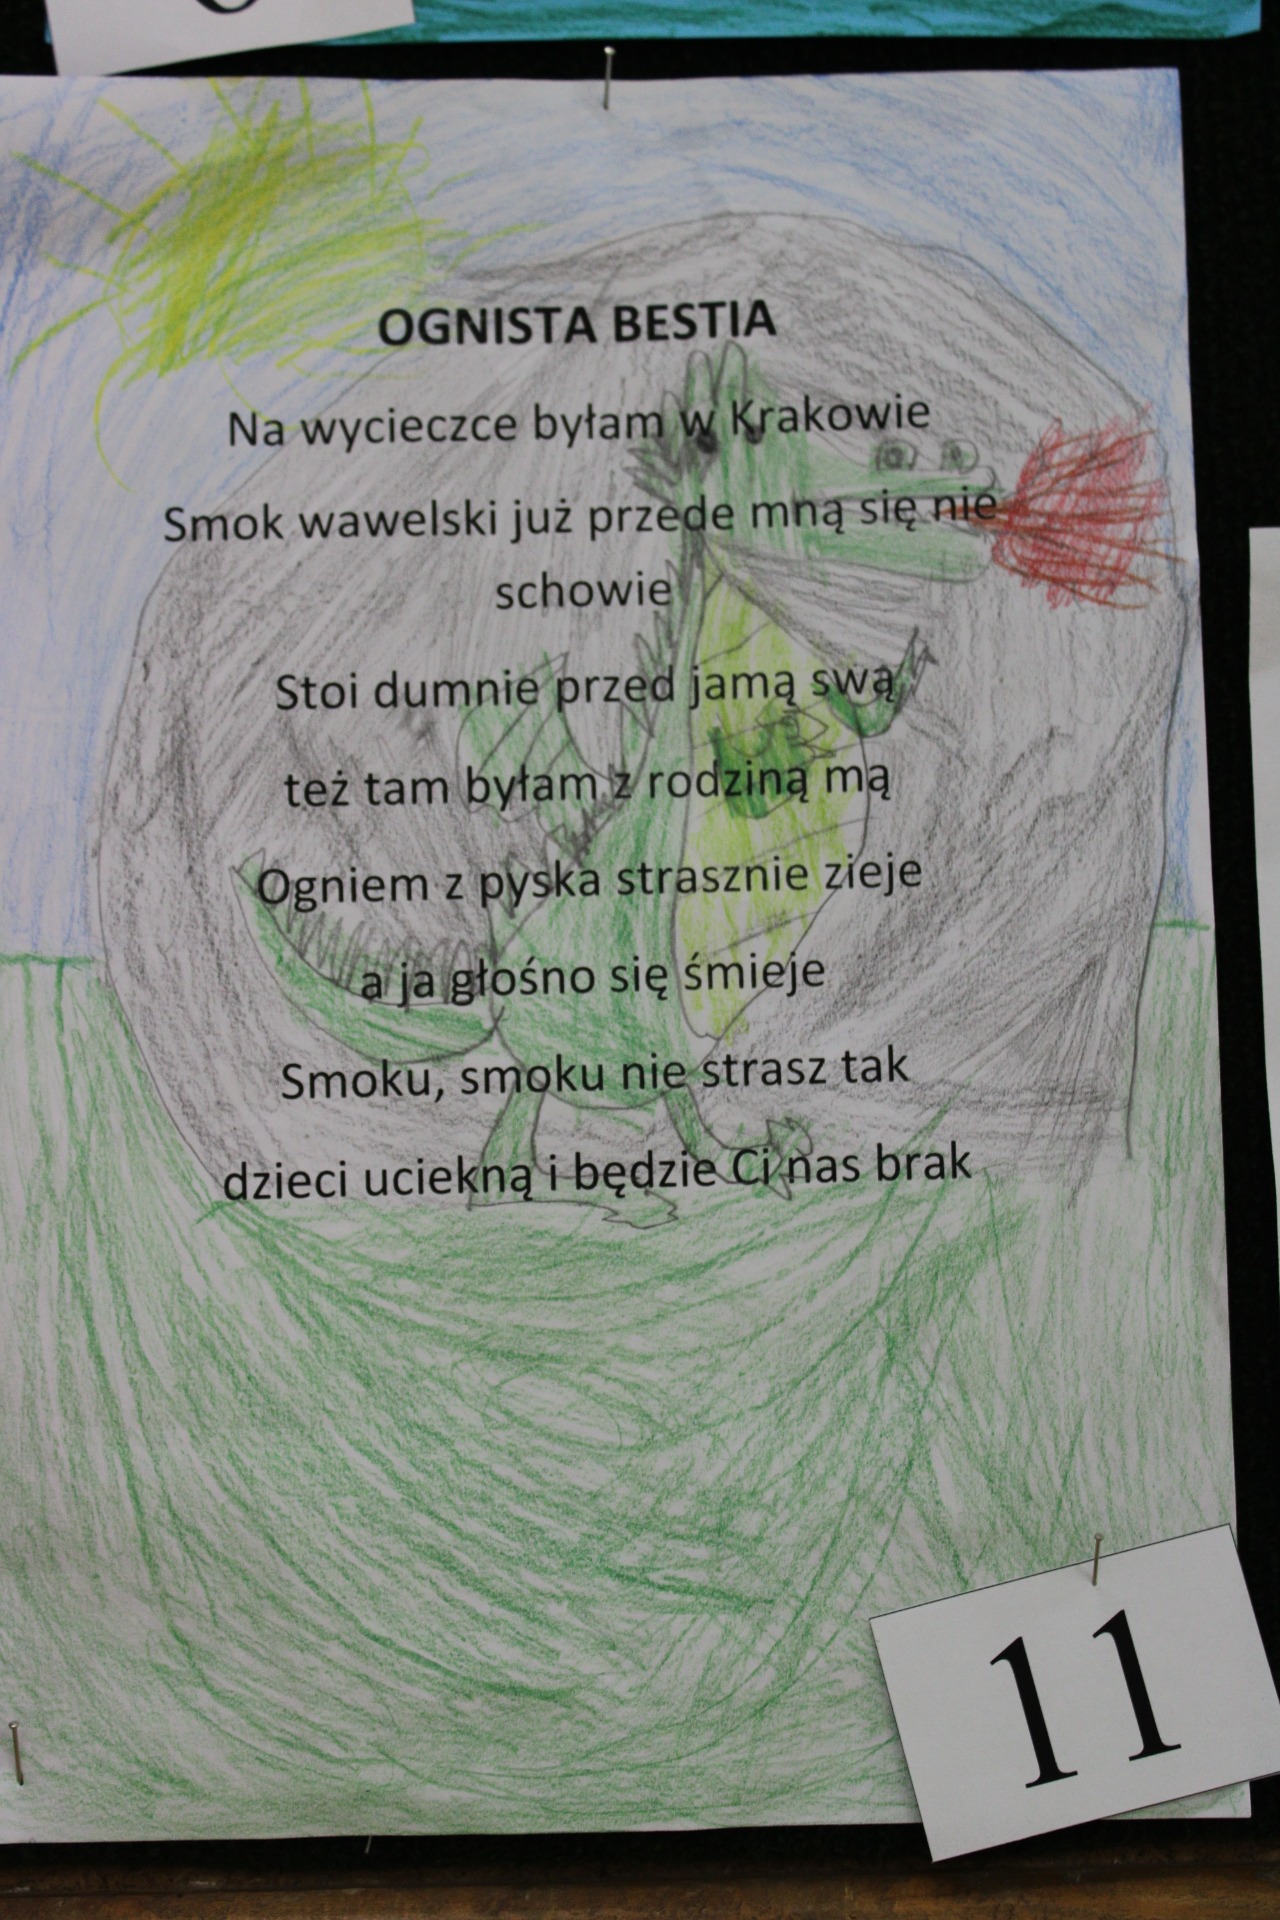 OGNISTA BESTIA
Na wycieczce byłam w Krakowie
Smok wawelski już przede mną się nie
schowie
Stoi dumnie przed jamą swą
też tam byłam z rodziną mą
Ogniem z pyska strasznie zieje
a ja głośno się śmieje
Smoku, smoku nie strasz tak
dzieci uciekną i będzie Ci nas brak
11